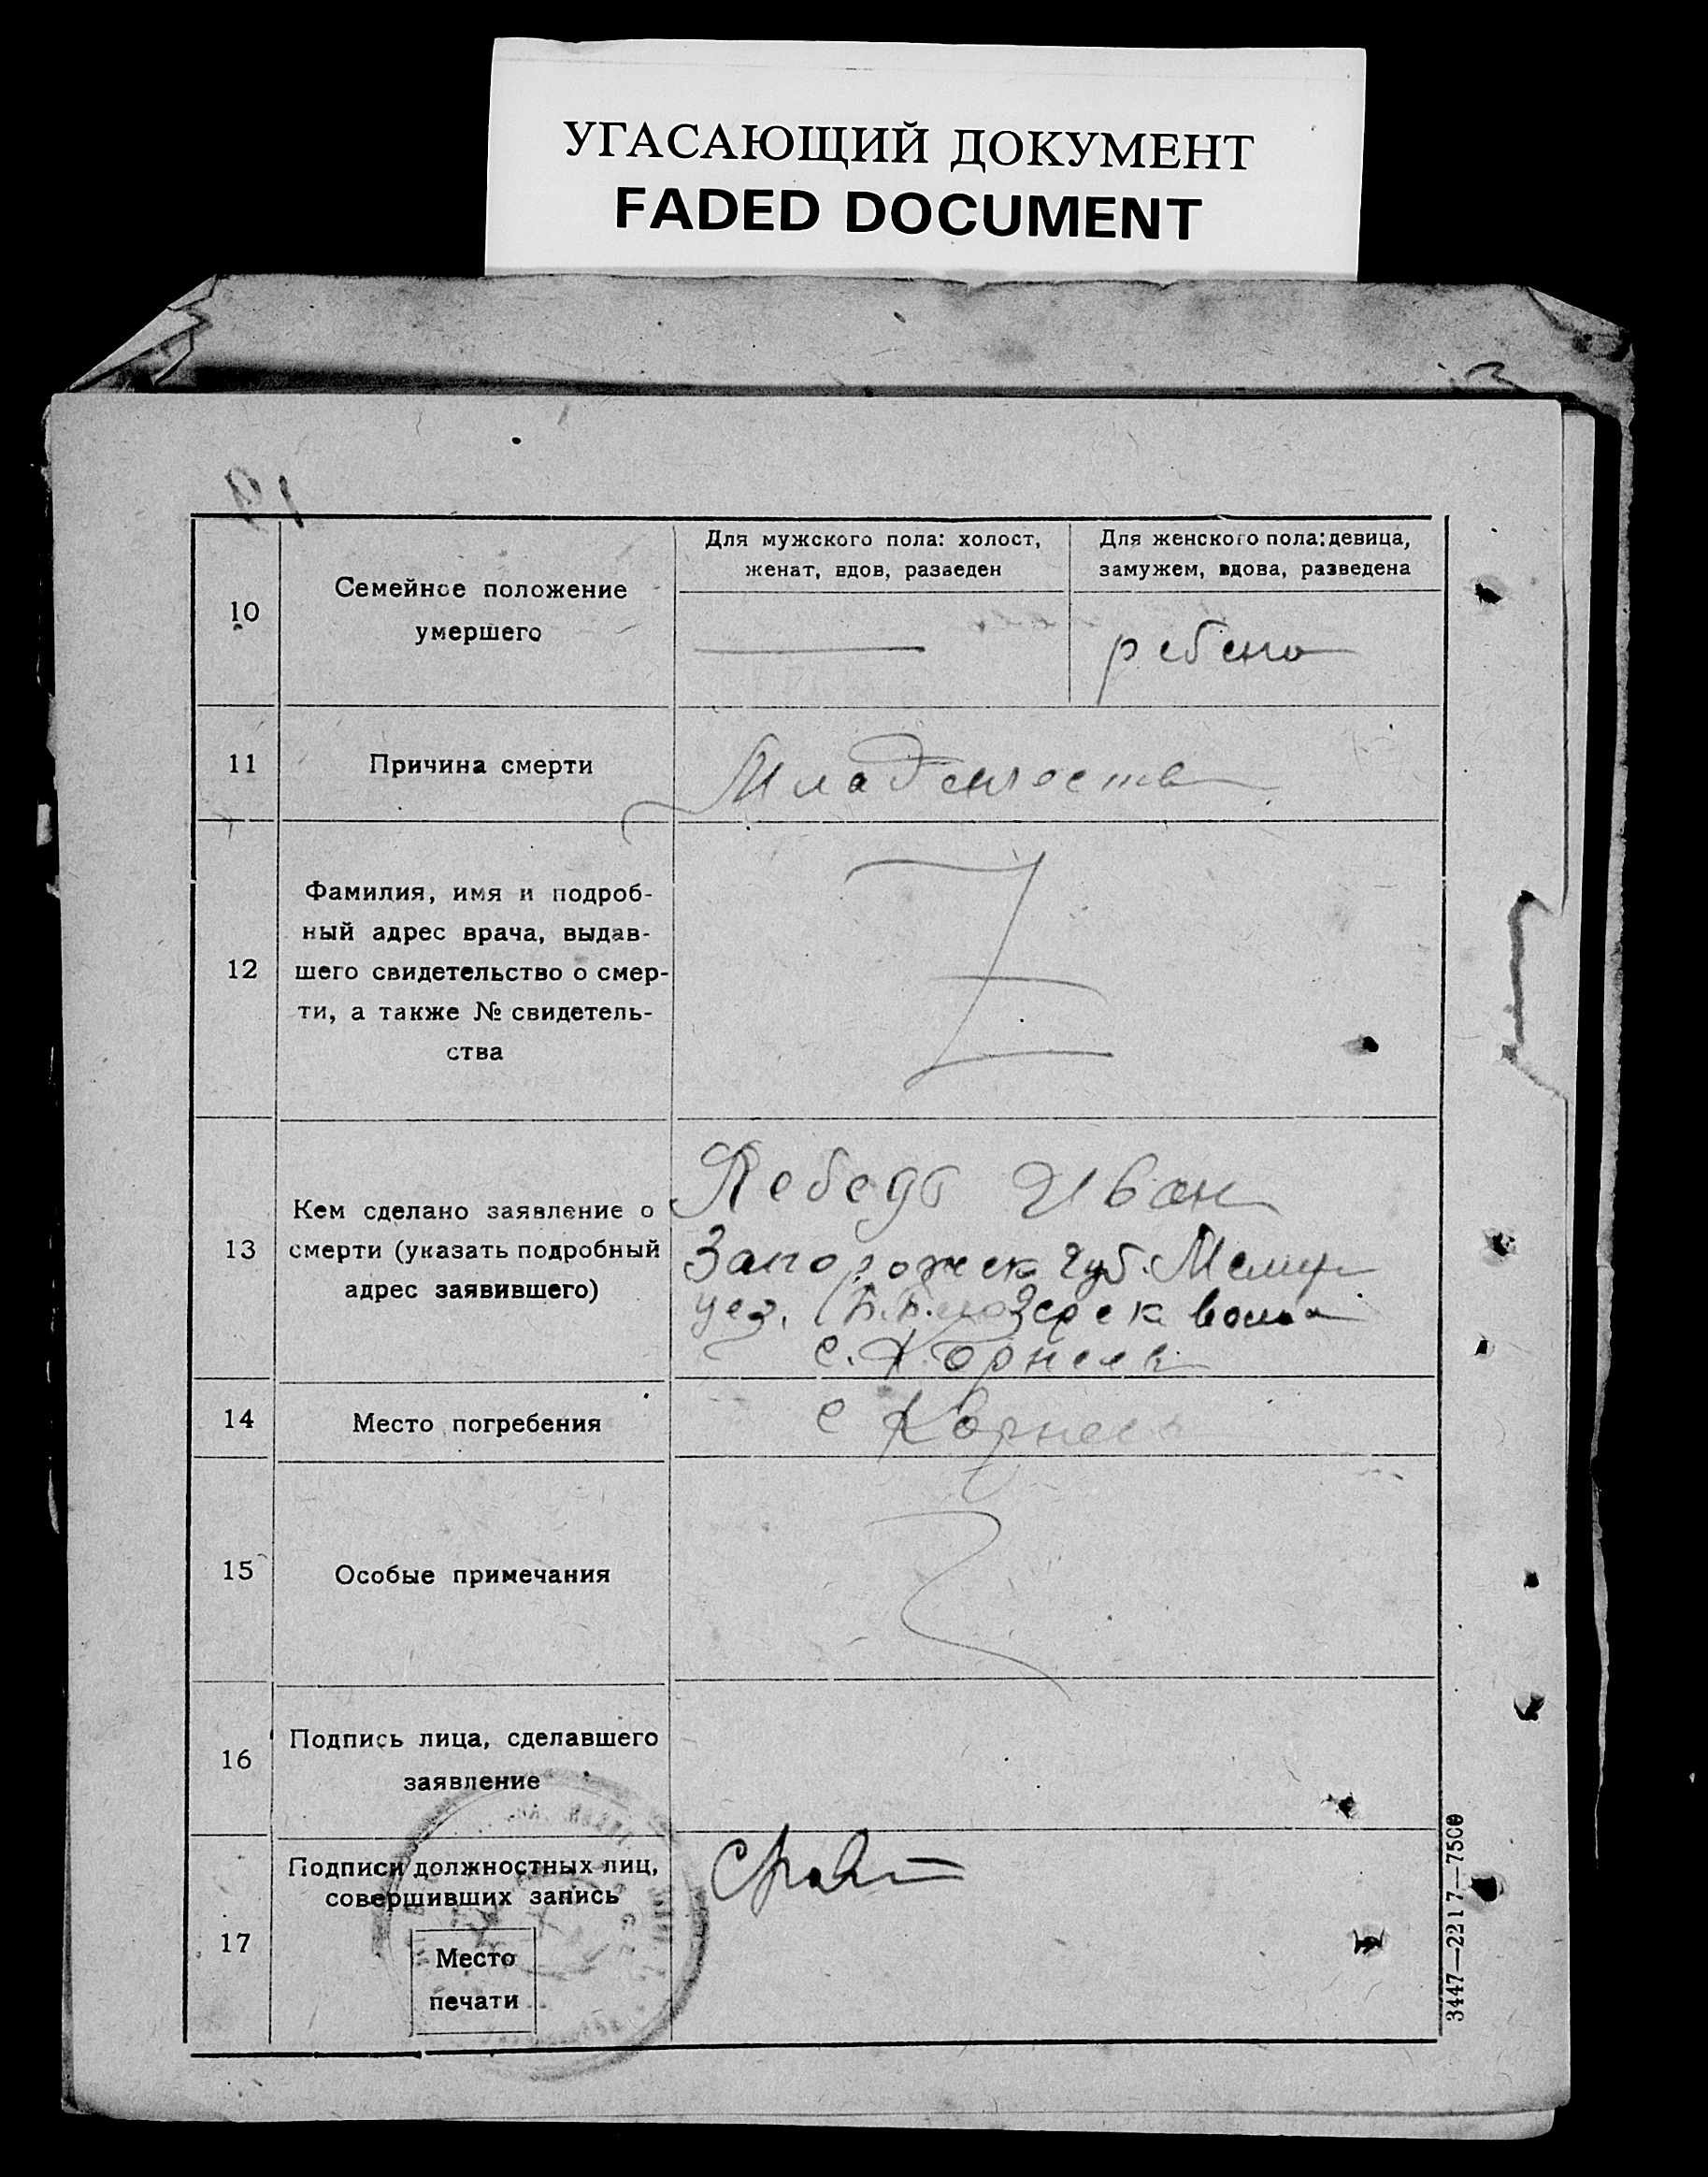 УГАСАЮЩИЙ ДОКУМЕНТ
FADED DOCUMENT
10
Семейное положение
умершего
Для мужского пола: холост,
женат, вдов, разведен
Для женского пола: девица,
замужем, вдова, разведена
ребено
11
Причина смерти
Младенчеств
12
Фамилия, имя и подроб-
ный адрес врача, выдав-
шего свидетельство о смер-
ти, а также № свидетель-
ства
13
Кем сделано заявление о
смерти (указать подробный
адрес заявившего)
Лебедь Иван
Запорожск губ. Мелит
уез.
с.
14
Место погребения
с
15
Особые примечания
16
Подпись лица, сделавшего
заявление
17
Подписи должностных лиц,
совершивших запись
Место
печати
3447—2217—7500